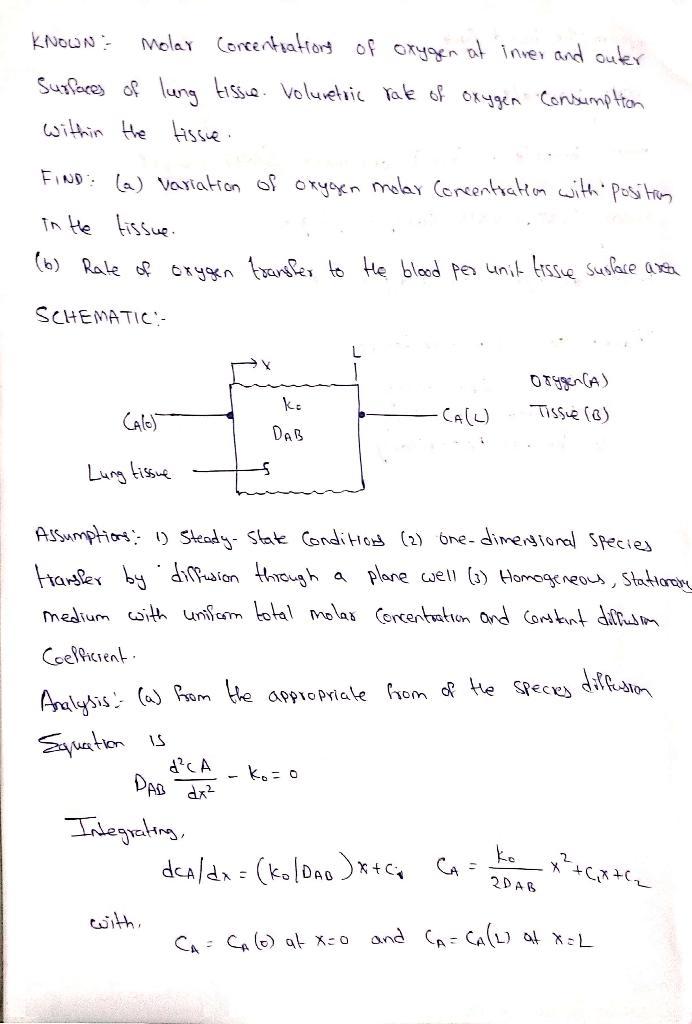 KNOWN :- Molar Concentrations of oxygen at inner and outer
Surfaces of lung tissue. Volumetric rate of oxygen Consumption
within the tissue.
FIND :- (a) variation of oxygen molar Concentration with position
in the tissue.
(b) Rate of oxygen transfer to the blood per unit tissue surface area
SCHEMATIC :-
x
L
CA(0)
K0
DAB
CA(L)
Oxygen(A)
Tissue (B)
Lung tissue
Assumptions :- 1) Steady-State Conditions (2) one-dimensional Species
transfer by diffusion through a plane well (3) Homogeneous, Stationary
medium with uniform total molar Concentration and Constant diffusion
Coefficient.
Analysis :- (a) From the appropriate from of the species diffusion
Equation is
DAB d²CA/dx² - K0 = 0
Integrating,
dCA/dx = (K0/DAB) x + C1 CA = K0/2DAB x² + C1x + C2
with,
CA = CA(0) at x=0 and CA = CA(L) at x=L